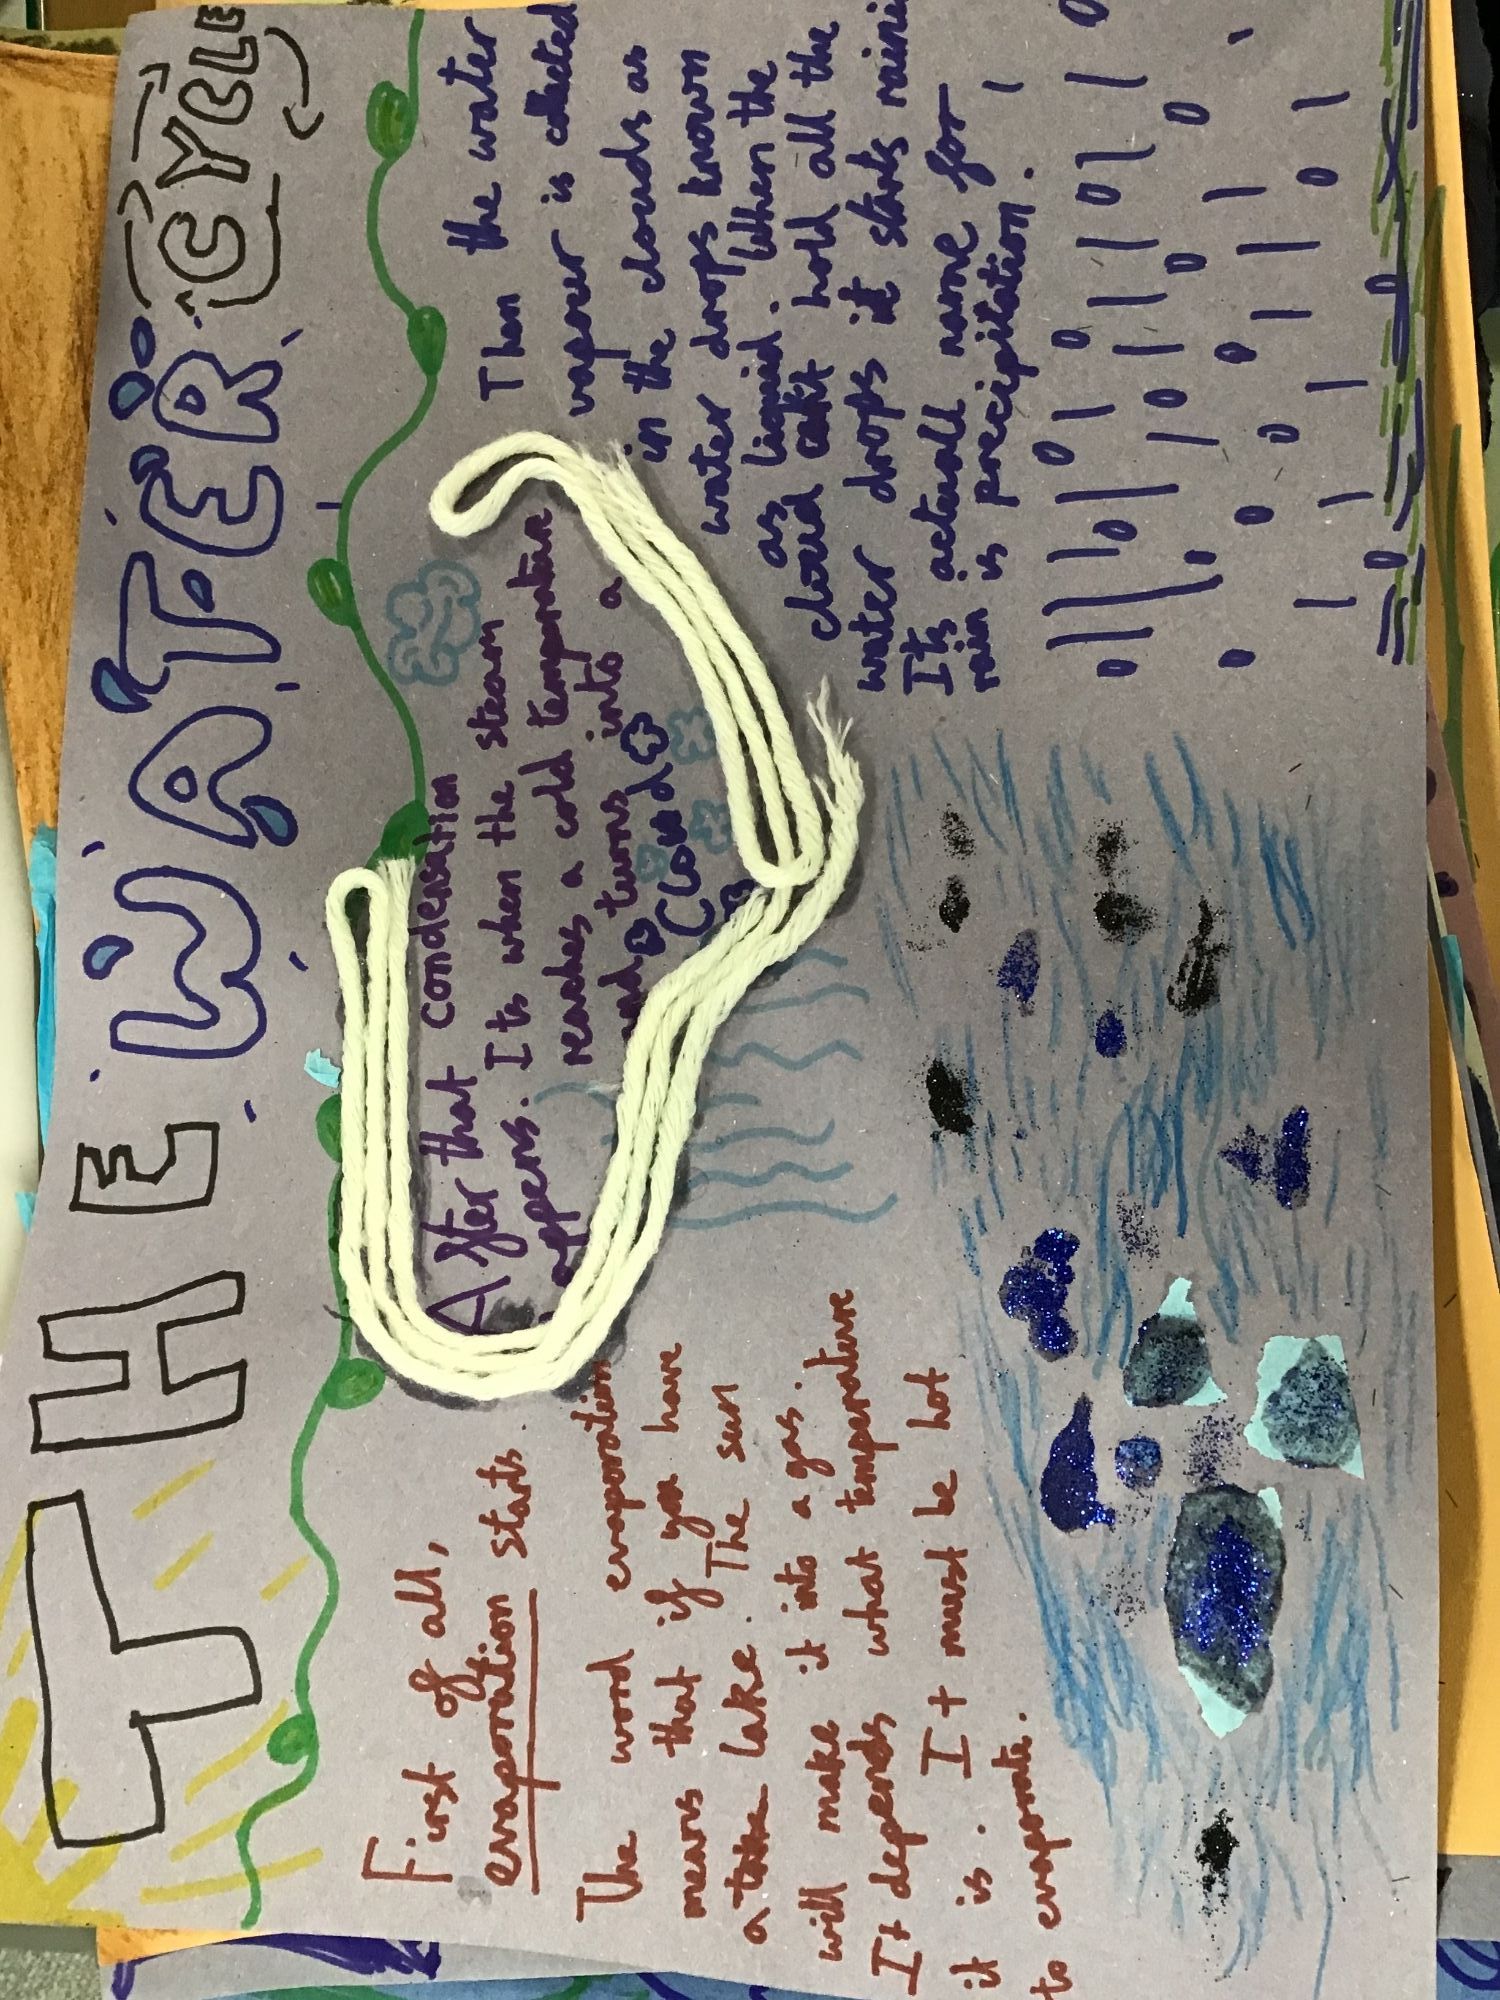 THE WATER CYCLE
First of all,
evaporation starts.
The word evaporation
means that if you have
a lake. The sun
will make it into a gas.
It depends what temperature
it is. It must be hot
to evaporate.
After that condensation
happens. Its when the steam
reaches a cold temperature
and turns into a
Cloud
Then the water
vapour is collected
in the clouds as
water drops known
as liquid. When the
cloud hold all the
water drops it starts
Its actuall name for
rain is precipitation.